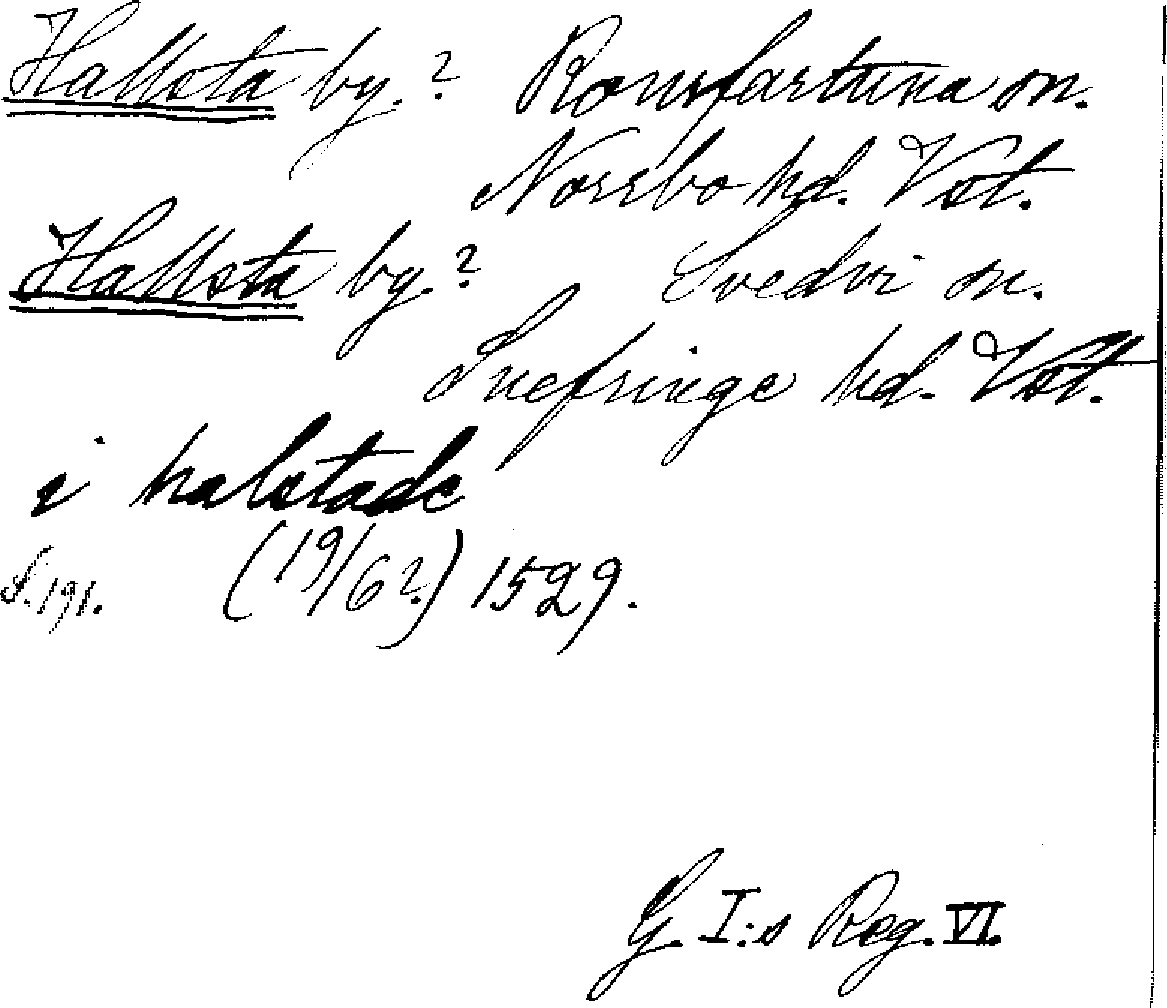 Hallsta by.? Romfartuna sn.
Norrbo hd. Vstl.
Hallsta by.? Svedvi sn.
Snefringe hd. Vstl.
i halstade
S. 191. (19/6?) 1529.
G. I:s Reg. VI.